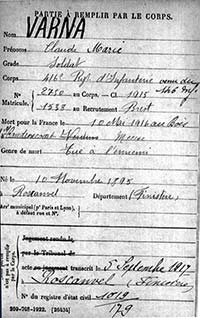 PARTIE À REMPLIR PAR LE CORPS.
Nom VARNA
Prénoms Claude Marie
Grade Soldat
Corps 416e Rgt d'Infanterie venu du 146 Inf.
N° 2750 au Corps. — Cl. 1915
Matricule. 1533 au Recrutement Brest
Mort pour la France le 10 Mai 1916 au Bois
Meuse
Genre de mort Tué à l'ennemi
Né le 10 Novembre 1895
à Roscanvel Département (Finistère)
Arr municipal (pr Paris et Lyon),
à défaut rue et N°.
Jugement rendu le
par le Tribunal de
acte ou jugement transcrit le 5 Septembre 1917
à Roscanvel (Finistère)
N° du registre d'état civil 1019
179